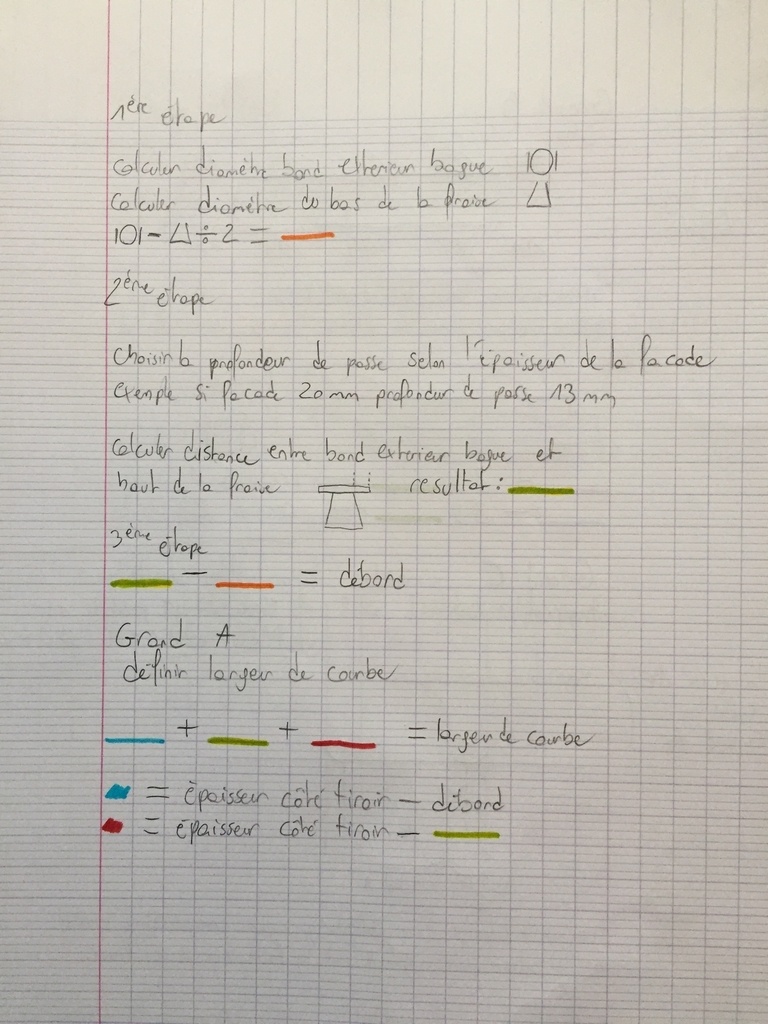 1ère étape
Calculer diamètre bord exterieur bague |O|
Calculer diamètre du bas de la fraise
|O| - ÷ 2 =
2ème étape
Choisir la profondeur de passe selon l'épaisseur de la facade
Exemple si facade 20 mm profondur de passe 13 mm
Calculer distance entre bord exterieur bague et
haut de la fraise resultat :
3ème étape
- = débord
Grand A
définir largeur de courbe
+ + = largeur de courbe
= épaisseur côté tiroir - débord
= épaisseur côté tiroir -